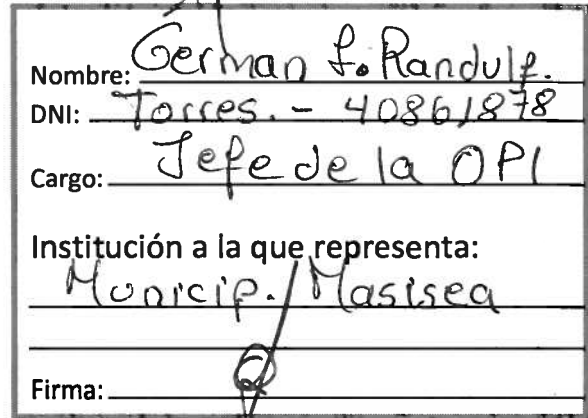 Nombre: German f. Randulf.
DNI: Torres. - 40861878
Cargo: Jefe de la OPI
Institución a la que representa:
Municip. Masisea
Firma: